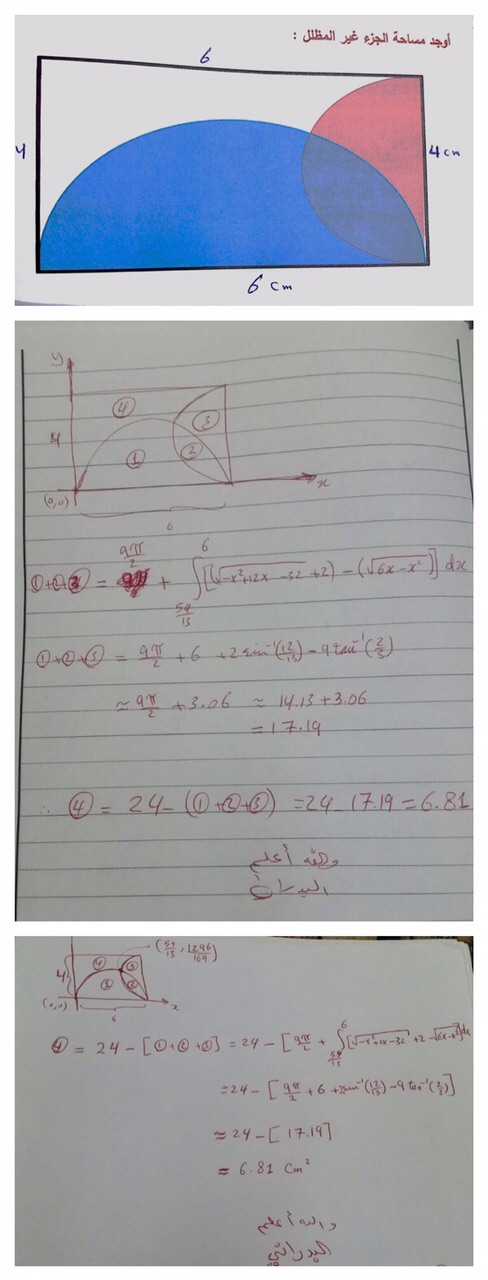 أوجد مساحة الجزء غير المظلل :
6
4
4 cm
6 cm
y
4
④
③
①
②
(0,0)
x
6
①+②+③ = 9π/2 + ∫_{54/13}^{6} [(√(-x²+12x-32) + 2) - (√(6x-x²))] dx
①+②+③ = 9π/2 + 6 + 2 sin⁻¹(12/13) - 9 tan⁻¹(2/3)
≈ 9π/2 + 3.06 ≈ 14.13 + 3.06
= 17.19
∴ ④ = 24 - (①+②+③) = 24 - 17.19 = 6.81
والله أعلم
البدراني
(54/13, 1296/169)
4
④
③
①
②
(0,0)
6
x
④ = 24 - [①+②+③] = 24 - [9π/2 + ∫_{54/13}^{6} [√(-x²+12x-32) + 2 - √(6x-x²)] dx
= 24 - [9π/2 + 6 + 2 sin⁻¹(12/13) - 9 tan⁻¹(2/3)]
≈ 24 - [17.19]
≈ 6.81 Cm²
والله أعلم
البدراني